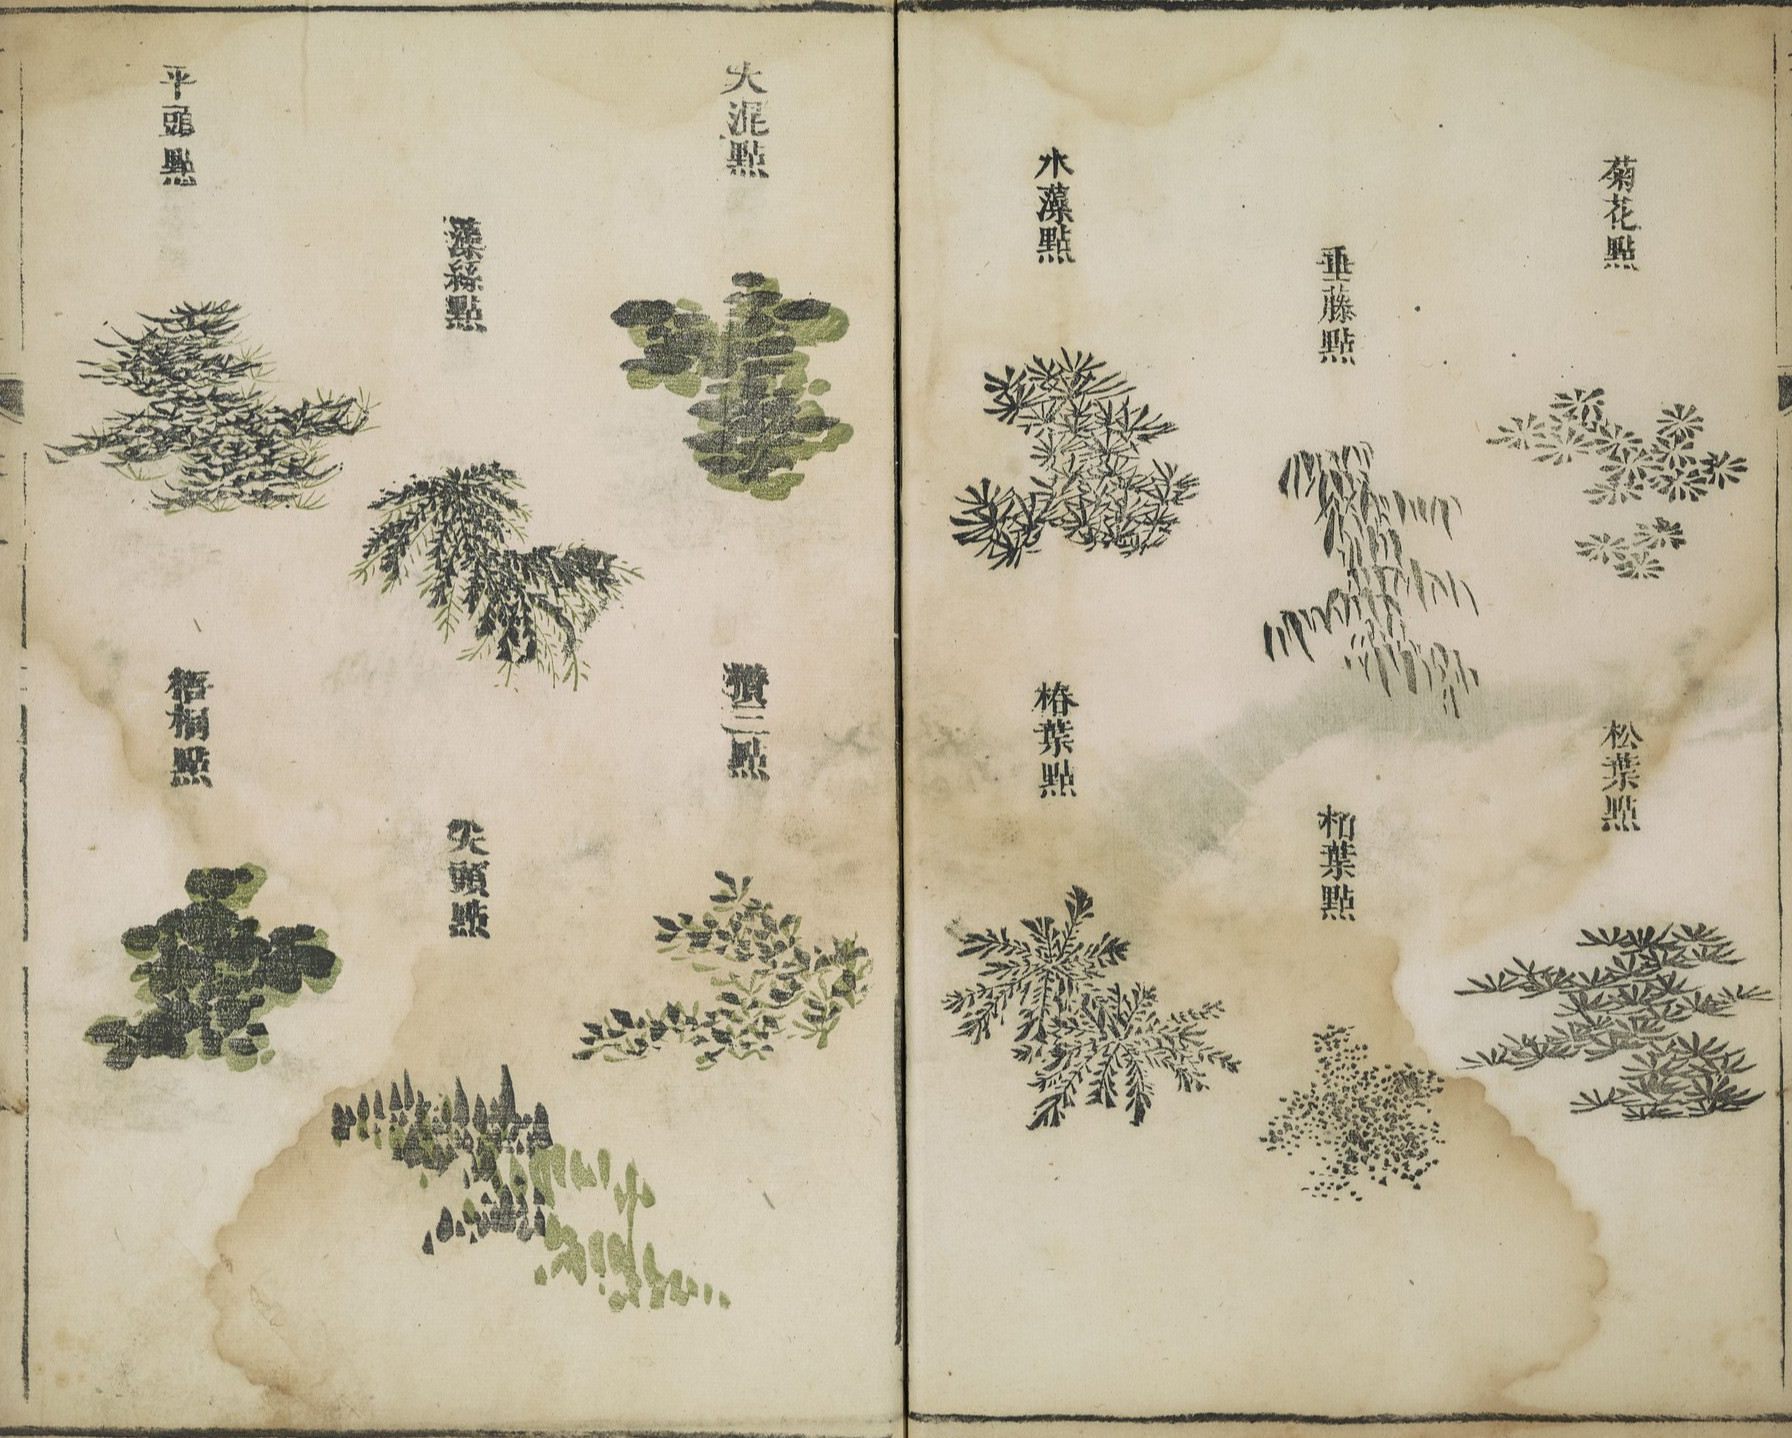 菊花點
松葉點
垂藤點
柏葉點
水藻點
椿葉點
大混點
攢三點
藻絲點
尖頭點
平頭點
梧桐點